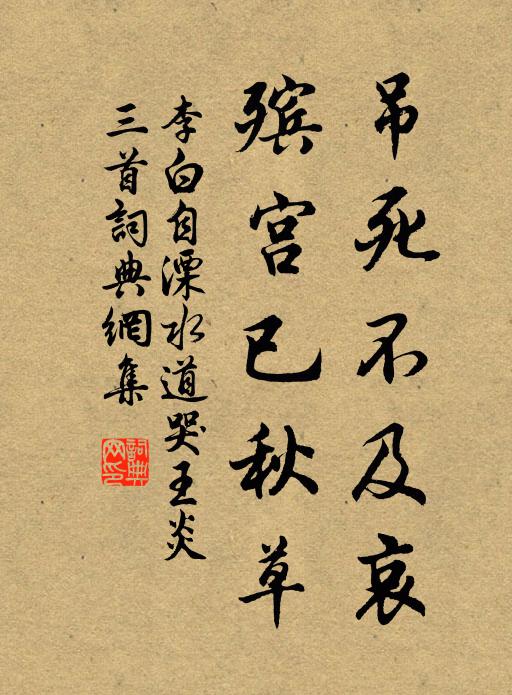 吊死不及哀
殡宫已秋草
李白自溧水道哭王炎
三首詞典網集
詞典
网印